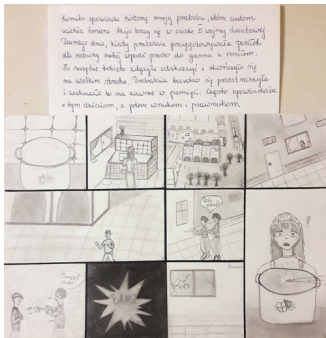 Komiks opowiada historię mojej prababci, która cudem
uciekła śmierci. Akcja toczy się w czasie II wojny światowej.
Pewnego dnia, kiedy prababcia przygotowywała posiłek
dla rodziny nabój wpadł prosto do garnka z
Na szczęście kobieta zdążyła odskoczyć i skończyło się
na wielkim strachu. Prababcia bardzo się przestraszyła
i zachowała to na zawsze w pamięci. Często opowiadała
o tym dzieciom, a potem wnukom i prawnukom.
BANG